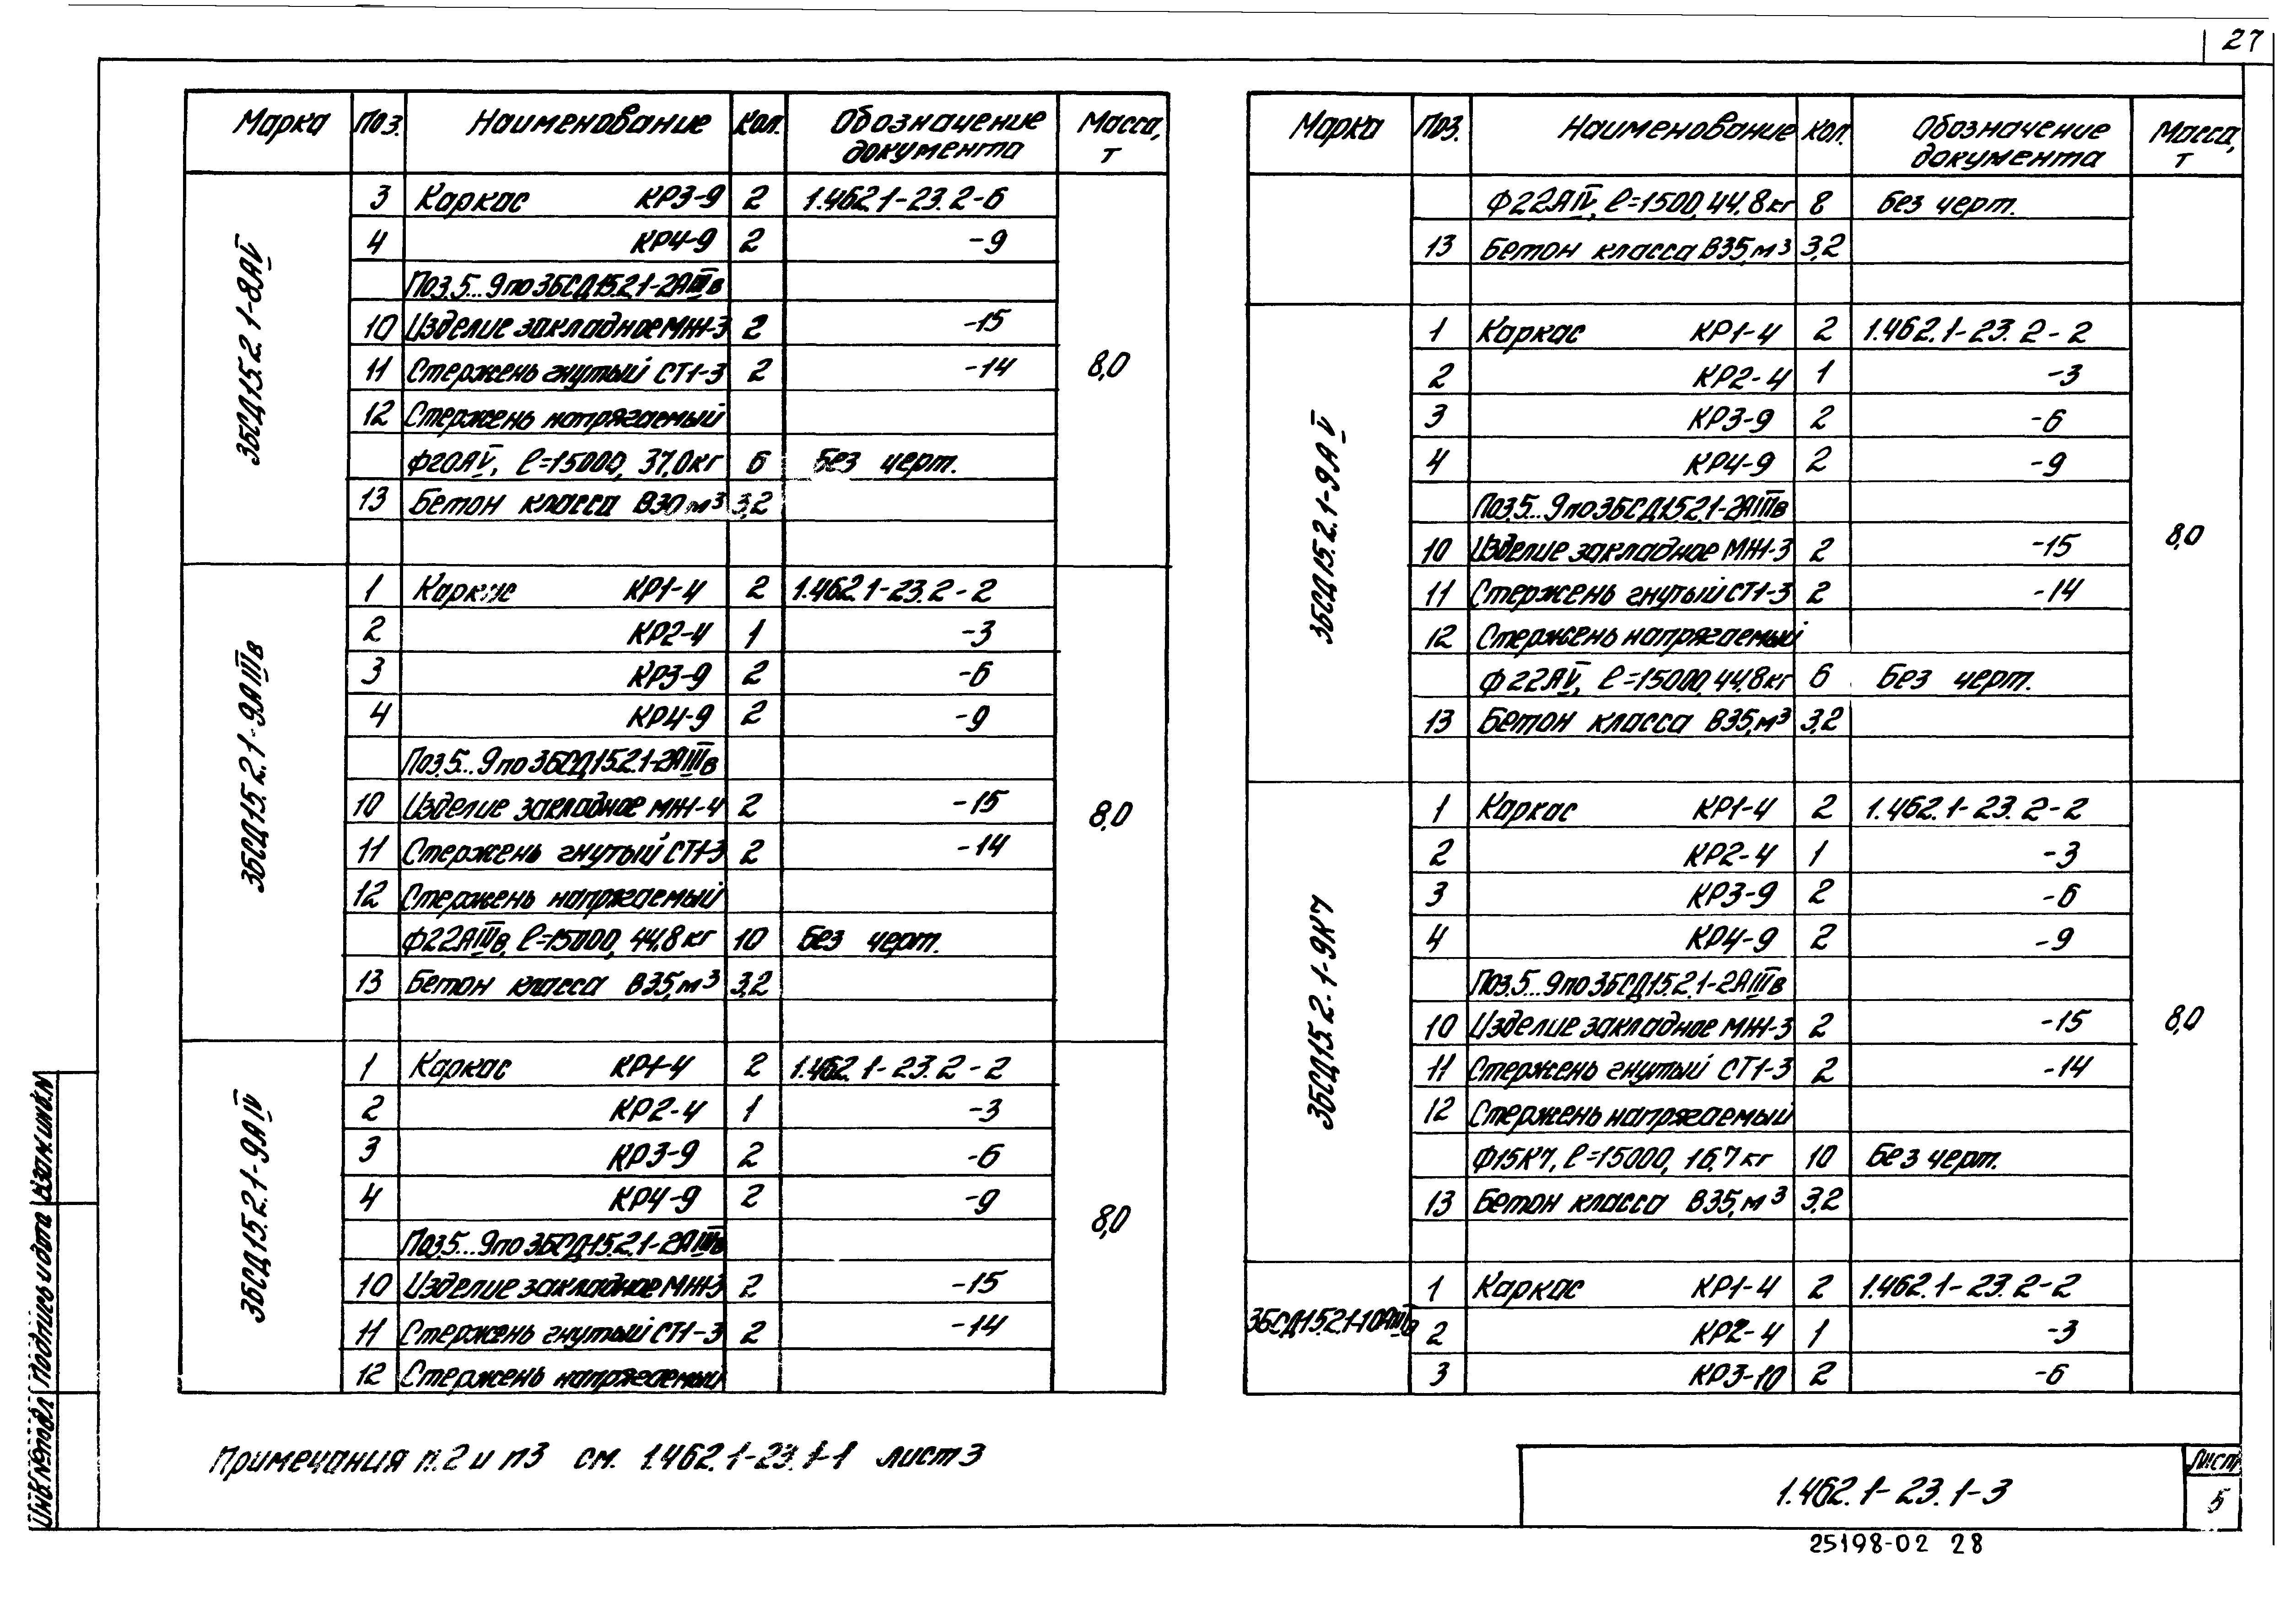 27
Марка Поз. Наименование Кол. Обозначение документа Масса, т
3БСД15.2.1-8АV
3 Каркас КР3-9 2 1.462.1-23.2-6
4 КР4-9 2 -9
Поз.5...9 по 3БСД15.2.1-2АIIIв
10 Изделие закладное МН-3 2 -15
11 Стержень гнутый СТ1-3 2 -14
8,0
12 Стержень напрягаемый
Ф20АV, ℓ=15000, 37,0кг 6 Без черт.
13 Бетон класса В30, м³ 3,2
3БСД15.2.1-9АIIIв
1 Каркас КР1-4 2 1.462.1-23.2-2
2 КР2-4 1 -3
3 КР3-9 2 -6
4 КР4-9 2 -9
Поз.5...9 по 3БСД15.2.1-2АIIIв
10 Изделие закладное МН-4 2 -15
8,0
11 Стержень гнутый СТ1-3 2 -14
12 Стержень напрягаемый
Ф22АIIIв, ℓ=15000, 44,8кг 10 Без черт.
13 Бетон класса В35, м³ 3,2
3БСД15.2.1-9АIV
1 Каркас КР1-4 2 1.462.1-23.2-2
2 КР2-4 1 -3
3 КР3-9 2 -6
4 КР4-9 2 -9
8,0
Поз.5...9 по 3БСД15.2.1-2АIIIв
10 Изделие закладное МН-3 2 -15
11 Стержень гнутый СТ1-3 2 -14
12 Стержень напрягаемый
Марка Поз. Наименование Кол. Обозначение документа Масса, т
Ф22АIV, ℓ=1500, 44,8кг 8 Без черт.
13 Бетон класса В35, м³ 3,2
3БСД15.2.1-9АV
1 Каркас КР1-4 2 1.462.1-23.2-2
2 КР2-4 1 -3
3 КР3-9 2 -6
4 КР4-9 2 -9
Поз.5...9 по 3БСД15.2.1-2АIIIв
10 Изделие закладное МН-3 2 -15
8,0
11 Стержень гнутый СТ1-3 2 -14
12 Стержень напрягаемый
Ф22АV, ℓ=15000, 44,8кг 6 Без черт.
13 Бетон класса В35, м³ 3,2
3БСД15.2.1-9К7
1 Каркас КР1-4 2 1.462.1-23.2-2
2 КР2-4 1 -3
3 КР3-9 2 -6
4 КР4-9 2 -9
Поз.5...9 по 3БСД15.2.1-2АIIIв
10 Изделие закладное МН-3 2 -15
8,0
11 Стержень гнутый СТ1-3 2 -14
12 Стержень напрягаемый
Ф15К7, ℓ=15000, 16,7кг 10 Без черт.
13 Бетон класса В35, м³ 3,2
3БСД15.2.1-10АIIIв
1 Каркас КР1-4 2 1.462.1-23.2-2
2 КР2-4 1 -3
3 КР3-10 2 -6
Примечания п.2 и п3 см. 1.462.1-23.1-1 лист 3
1.462.1-23.1-3
Лист
5
25198-02 28
Инв.№подл. Подпись и дата Взам.инв.N